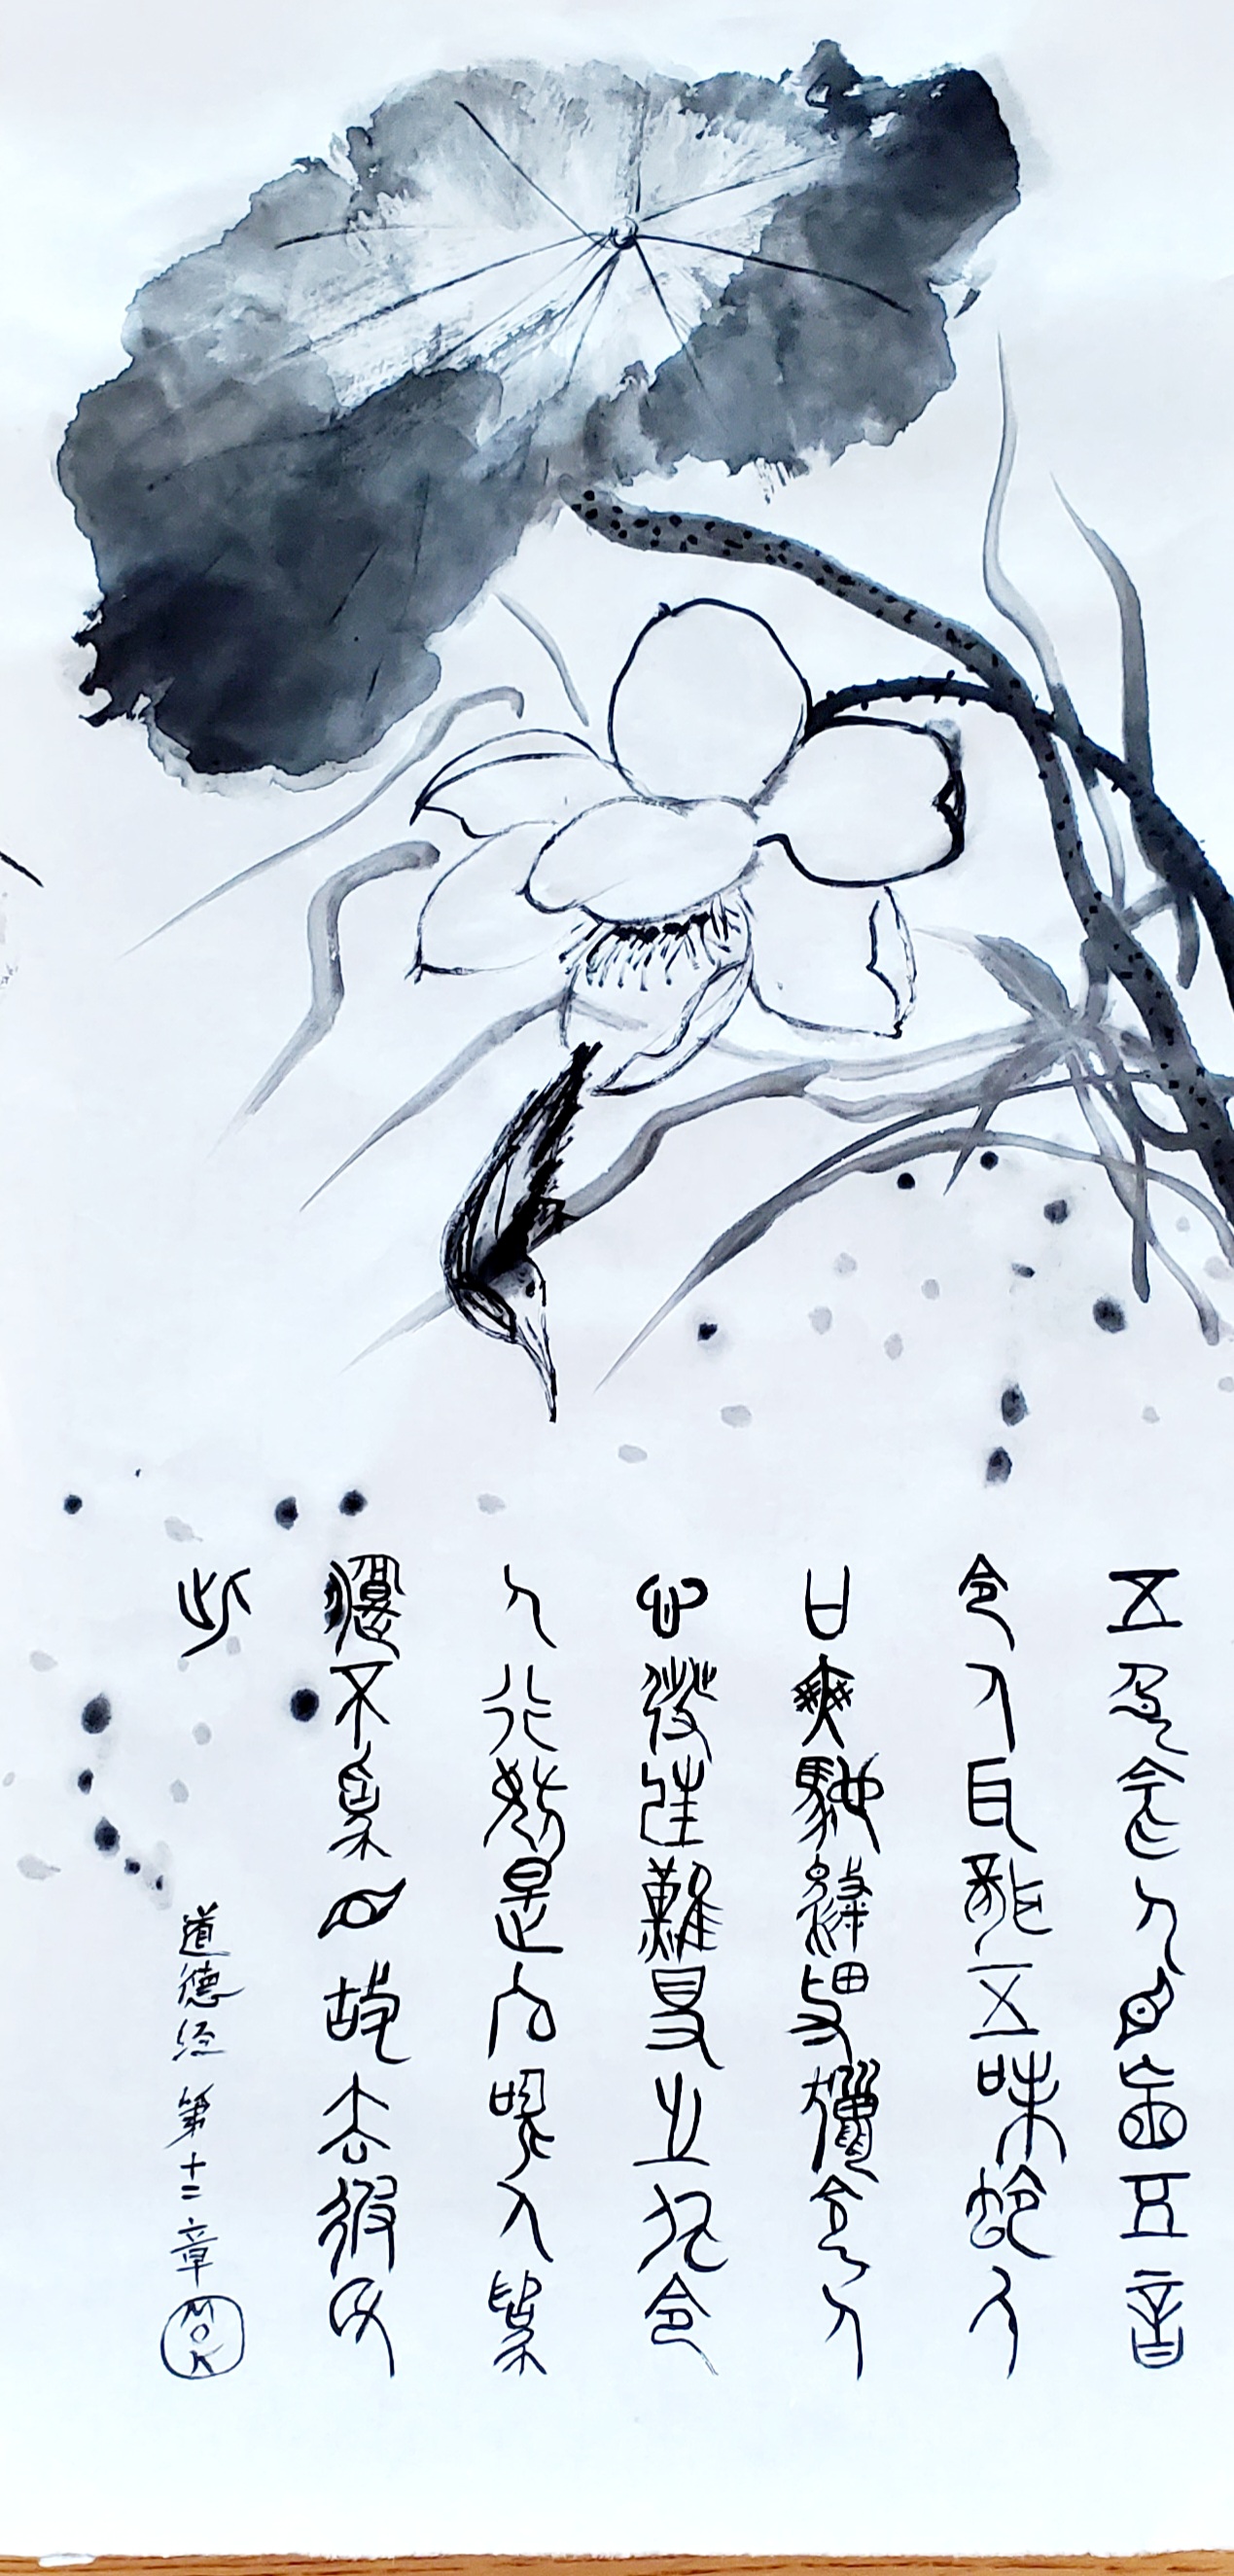 五色令人目盲五音
令人耳聾五味令人
口爽馳騁畋獵令人
心發狂難得之貨令
人行妨是以聖人為
腹不為目故去彼取
此
道德经 第十二章 MOK